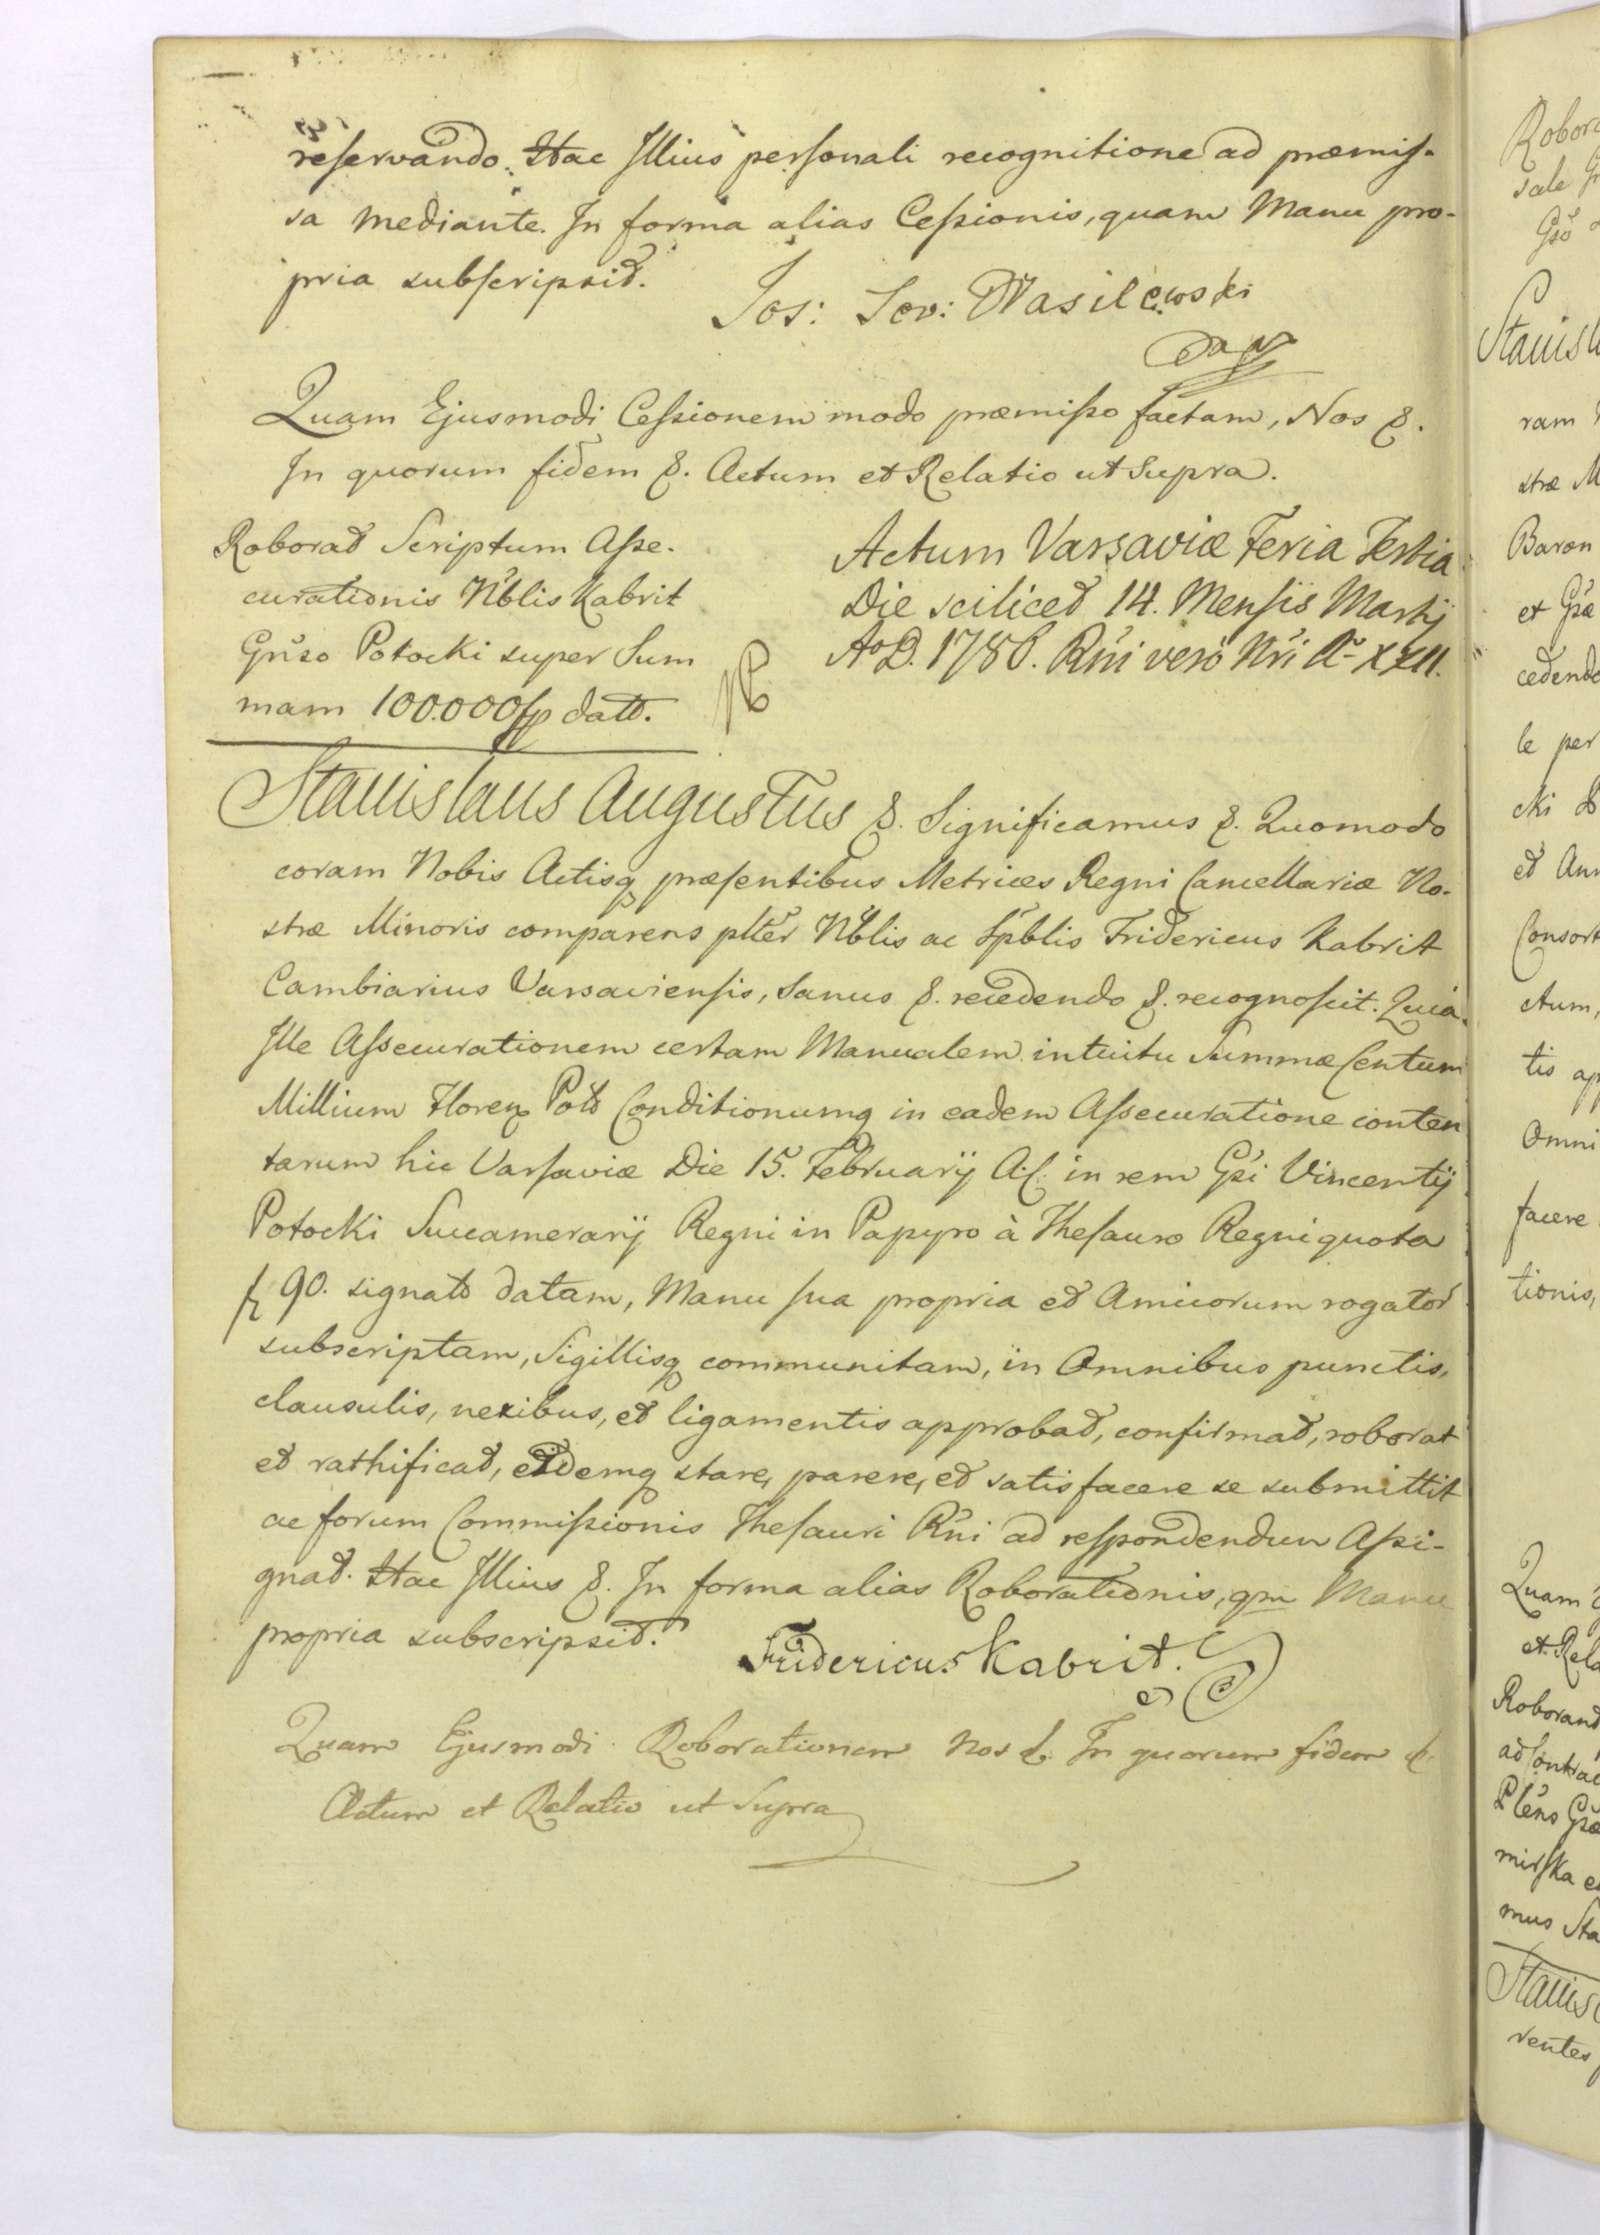 reservando. Hac Illius personali recognitione ad præmis-
sa mediante. In forma alias Cessionis, quam Manu pro-
pria subscripsit.
Jos: Sev: Wasilewski
Quam Ejusmodi Cessionem modo præmisso factam, Nos &.
In quorum fidem &. Actum et Relatio ut Supra.
Roborat Scriptum Asse-
curationis Nblis Kabrit
Gnso Potocki super Sum
mam 100.000 fp datt.
Actum Varsaviæ Feria Tertia
Die scilicet 14. Mensis Martij
AoD. 1786. Rni vero Nri Ao XXII.
Stanislaus Augustus &. Significamus &. Quomodo
coram Nobis Actisq præsentibus Metrices Regni Cancellariæ No-
stræ Minoris comparens plter Nblis ac Spblis Fridericus Kabrit
Cambiarius Varsaviensis, Sanus &. recedendo &. recognoscit. Quia
Ille Assecurationem certam Manualem intuitu Summæ Centum
Millium Floren Pol Conditionumq in eadem Assecuratione conten
tarum hic Varsaviæ Die 15. Februarij A.C. in rem Gsi Vincentij
Potocki Succamerarij Regni in Papyro à Thesauro Regni quota
f 90. signato datam, Manu sua propria et Amicorum rogator
subscriptam, Sigillisq communitam, in Omnibus punctis,
clausulis, nexibus, et ligamentis approbat, confirmat, roborat
et rathificat, eidemq stare, parere, et satisfacere se submittit
ac forum Commissionis Thesauri Rni ad respondendum Assi-
gnat. Hac Illius &. In forma alias Roborationis, qm Manu
propria subscripsit.
Fridericus Kabrit.
Quam Ejusmodi Roborationem Nos &. In quorum fidem &
Actum et Relatio ut Supra
sale
Stanisl
ram
stræ M
Baron
et Gsæ
cedendo
le per
cki
et Ann
Consort
ctum,
tis ap
Omni
facere
tionis,
Quam
et Rela
Roborant
ad Contrac
mirska e
mus Sta
Stanis
ventes